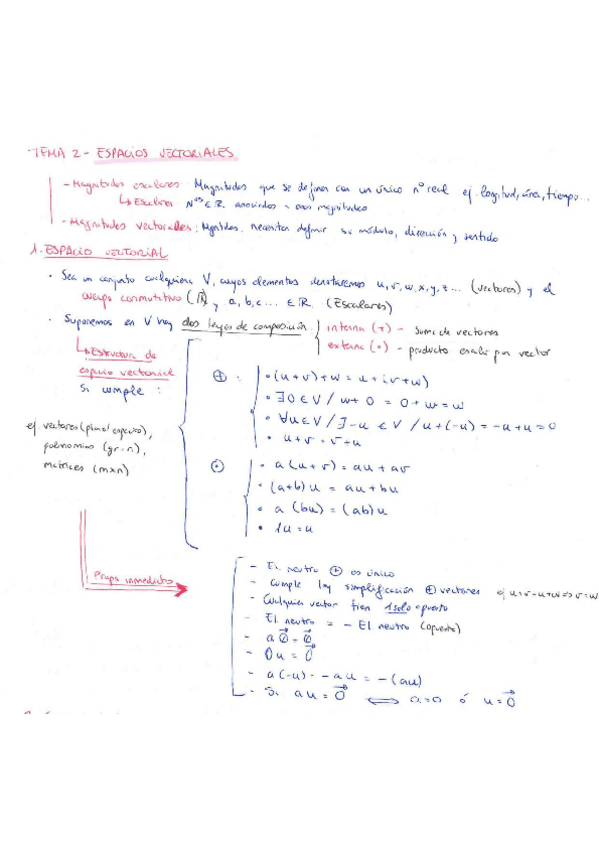 TEMA 2 - ESPACIOS VECTORIALES
- Magnitudes escalares: Magnitudes que se definen con un único nº real ej longitud, área, tiempo...
↳ Escalar Nºs ∈ ℝ asociados a esas magnitudes
- Magnitudes vectoriales: Mgntdes. necesitan definir su módulo, dirección y sentido
1. ESPACIO VECTORIAL
· Sea un conjunto cualquiera V, cuyos elementos denotaremos u, v, w, x, y, z... (vectores) y el
cuerpo conmutativo (ℝ), y a, b, c... ∈ ℝ. (Escalares)
· Suponemos en V hay dos leyes de composición
interna (+) - suma de vectores
externa (•) - producto escalar por vector
↳ Estructura de
espacio vectorial
Si cumple :
ej vectores (plano/espacio),
polinomios (gr. n),
matrices (m×n)
⊕ :
• (u+v)+w = u+(v+w)
• ∃0 ∈ V / w+0 = 0+w = w
• ∀u ∈ V / ∃-u ∈ V / u+(-u) = -u+u = 0
• u+v = v+u
⊙
• a(u+v) = au + av
• (a+b)u = au + bu
• a (bu) = (ab)u
• 1u = u
Props inmediatas
- El neutro ⊕ es único
- Cumple ley simplificación ⊕ vectores ej u+v = u+w => v=w
- Cualquier vector tiene 1 solo opuesto
- El neutro = - El neutro (opuesto)
- a 0⃗ = 0⃗
- 0u = 0⃗
- a(-u) = -au = -(au)
- Si au = 0⃗ ⟺ a=0 ó u=0⃗